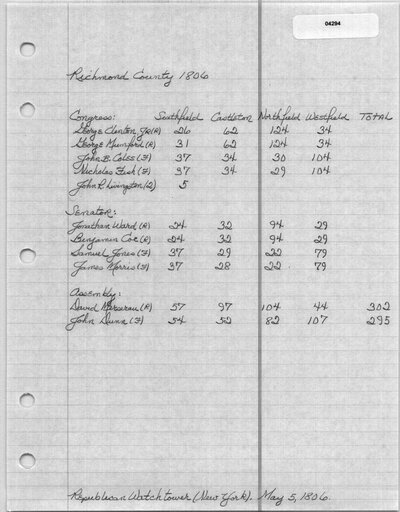 04294
Richmond County 1806
Congress: Southfield Castleton Northfield Westfield TOTAL
George Clinton Jr(R) 26 62 124 34
George Mumford (R) 31 62 124 34
John B. Coles (F) 37 34 30 104
Nicholas Fish (F) 37 34 29 104
John R. Livingston (Q) 5
Senator:
Jonathan Ward (R) 24 32 94 29
Benjamin Coe (R) 24 32 94 29
Samuel Jones (F) 37 29 22 79
James Morris (F) 37 28 22 79
Assembly:
David Mersereau (R) 57 97 104 44 302
John Dunn (F) 54 52 82 107 295
Republican Watchtower (New York). May 5, 1806.